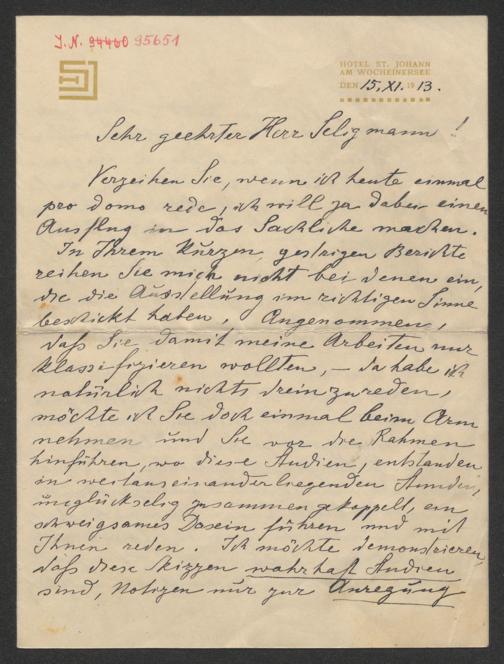 J. N. 94460 95651
HOTEL ST. JOHANN
AM WOCHEINERSEE
DEN 15, XI. 1913.
Sehr geehrter Herr Seligmann!
Verzeihen Sie, wenn ich heute einmal
pro domo rede, ich will ja dabei einen
Ausflug in das Sachliche machen.
In Ihrem kurzen, gestrigen Berichte
reihen Sie mich nicht bei denen ein,
die die Ausstellung im richtigen Sinne
beschickt haben. Angenommen,
daß Sie damit meine Arbeiten nur
klassifizieren wollten, – da habe ich
natürlich nichts dreinzureden,
möchte ich Sie doch einmal beim Arm
nehmen und Sie vor die Rahmen
hinführen, wo diese Studien, entstanden
in weitauseinanderliegenden Stunden,
unglückselig zusammengekoppelt, ein
schweigsames Dasein führen und mit
Ihnen reden. Ich möchte demonstrieren,
daß diese Skizzen wahrhaft Studien
sind, Notizen nur zur Anregung